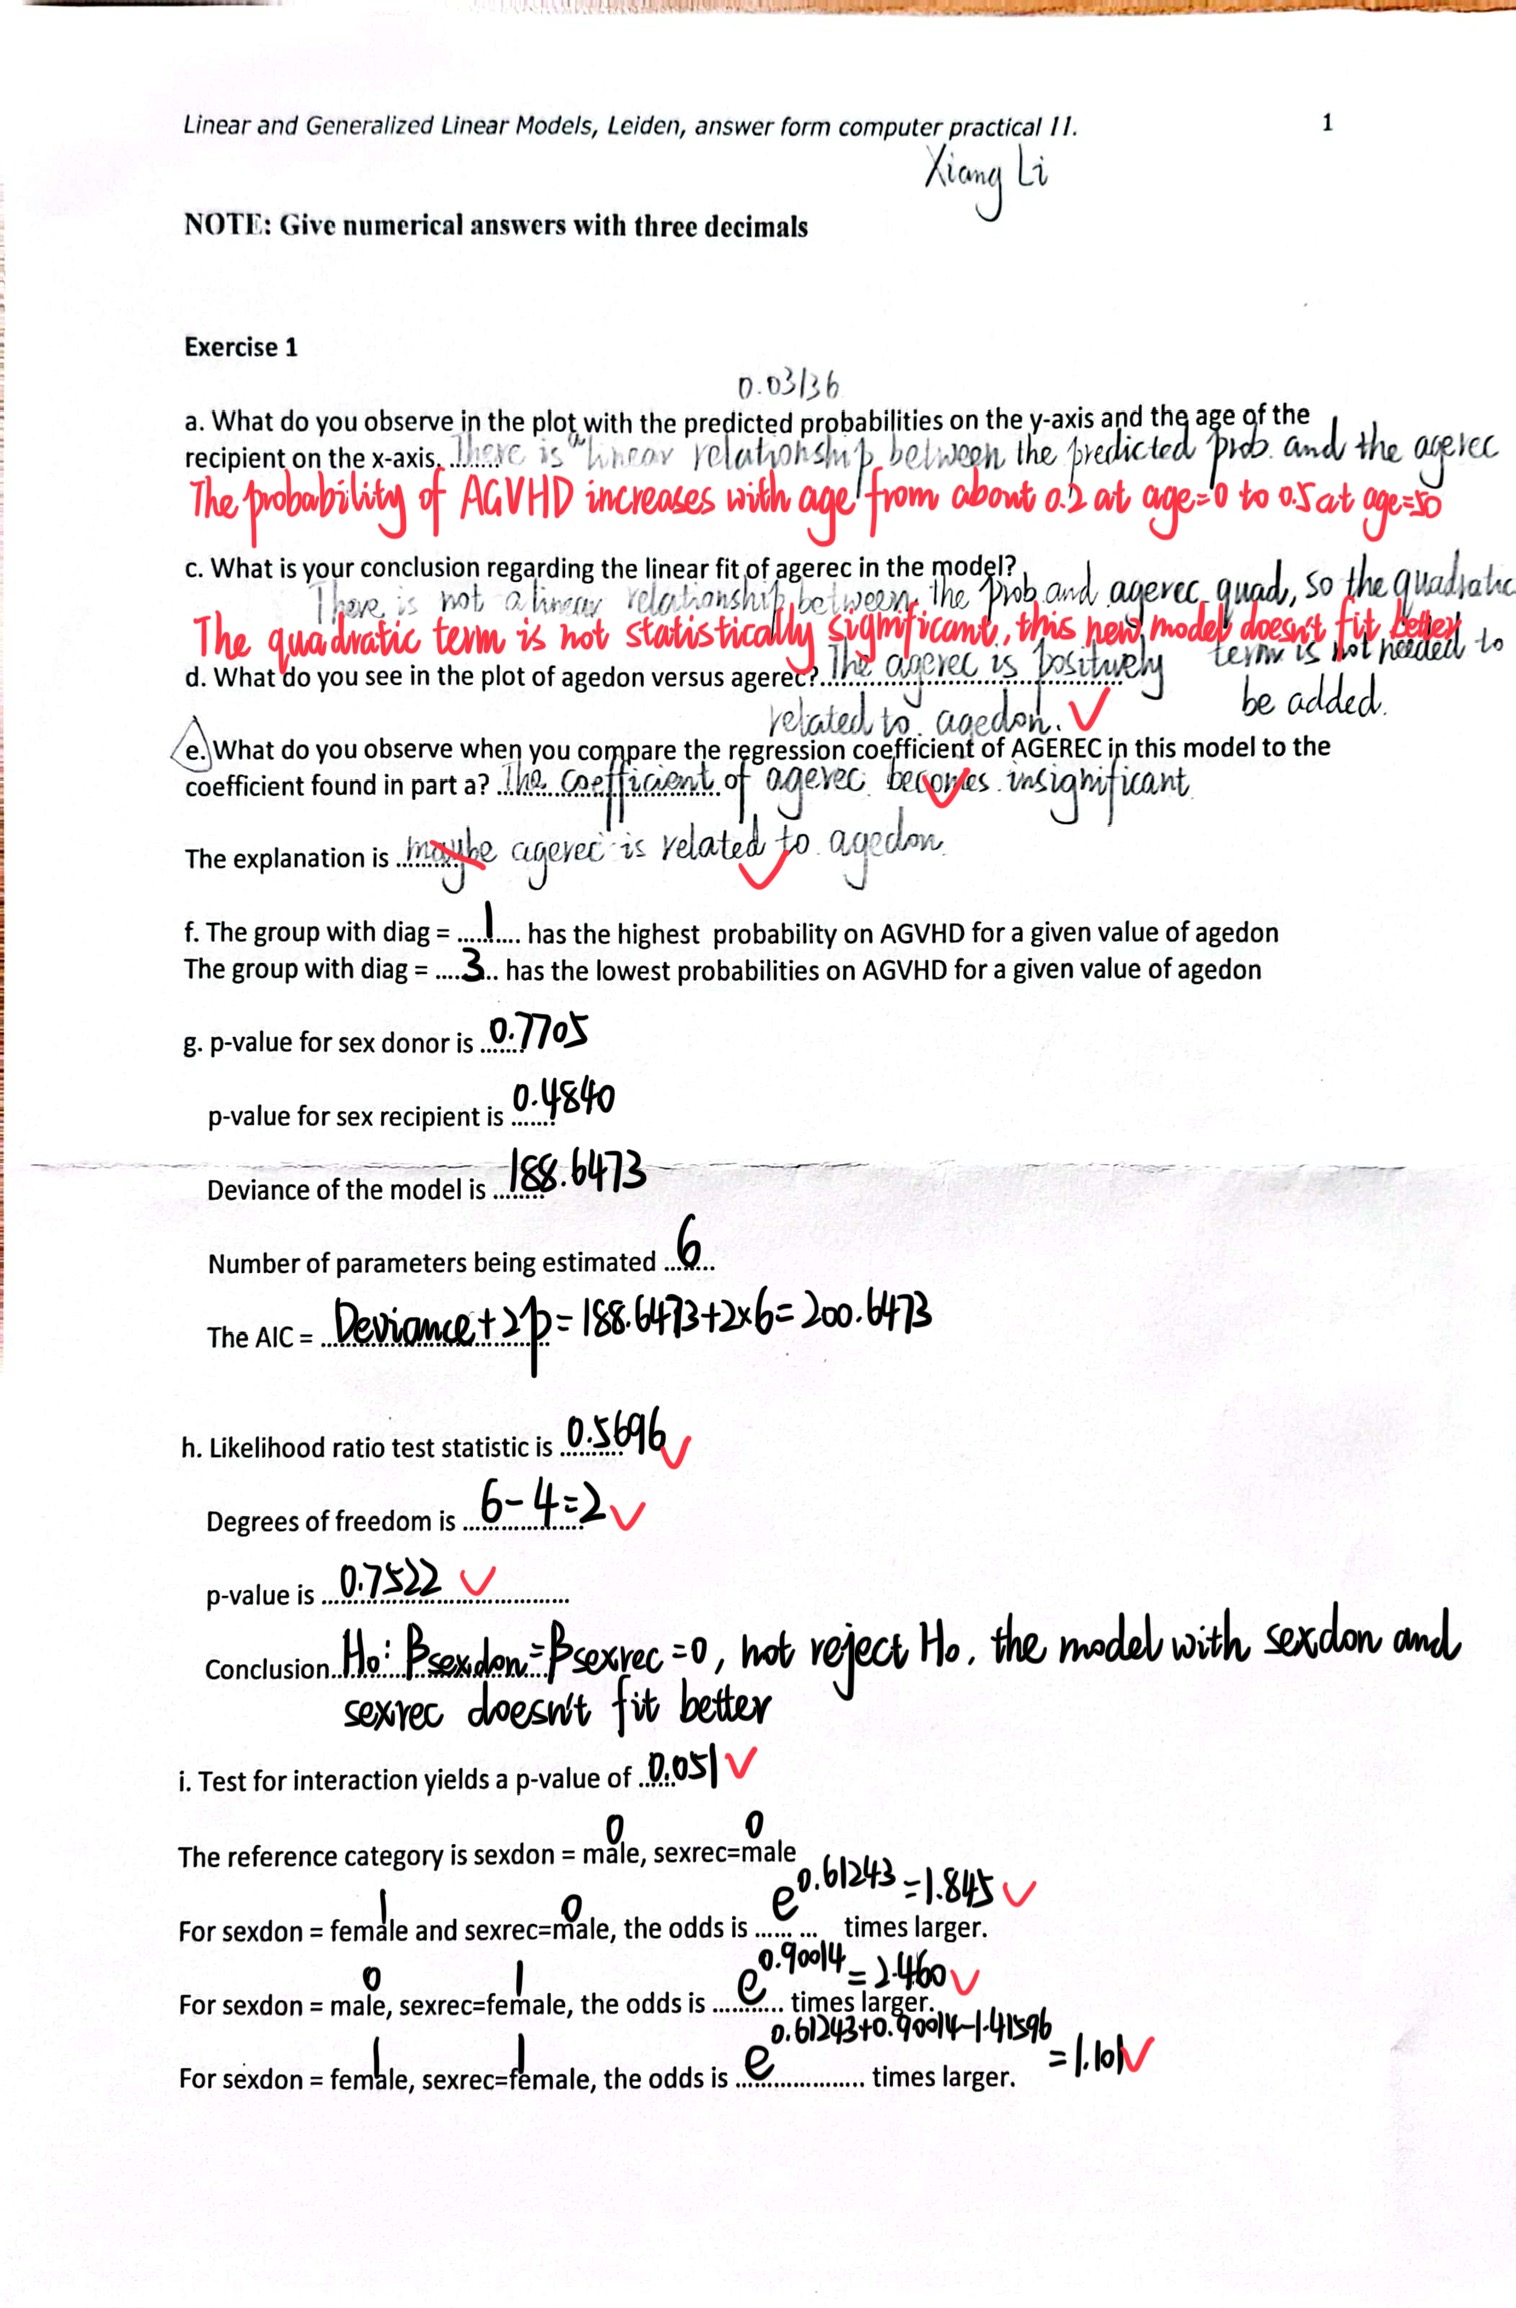 Linear and Generalized Linear Models, Leiden, answer form computer practical 11. 1
Xiang Li
NOTE: Give numerical answers with three decimals
Exercise 1
0.03136
a. What do you observe in the plot with the predicted probabilities on the y-axis and the age of the
recipient on the x-axis. ........ There is a linear relationship between the predicted prob. and the agerec
The probability of AGVHD increases with age from about 0.2 at age=0 to 0.5 at age=50
c. What is your conclusion regarding the linear fit of agerec in the model?
There is not a linear relationship between the prob and agerec quad, so the quadratic
The quadratic term is not statistically significant, this new model doesn't fit better
term is not needed to
d. What do you see in the plot of agedon versus agerec?.. The agerec is positively
be added.
related to agedon. ✓
e. What do you observe when you compare the regression coefficient of AGEREC in this model to the
coefficient found in part a? ... The coefficient of agerec becomes insignificant ✓
The explanation is ........ maybe agerec is related to agedon. ✓
f. The group with diag = ....1.... has the highest probability on AGVHD for a given value of agedon
The group with diag = ....3.. has the lowest probabilities on AGVHD for a given value of agedon
g. p-value for sex donor is ....... 0.7705
p-value for sex recipient is ....... 0.4840
Deviance of the model is ........ 188.6473
Number of parameters being estimated ... 6 ...
The AIC = ... Deviance+2p = 188.6473+2×6= 200.6473
h. Likelihood ratio test statistic is .......... 0.5696 ✓
Degrees of freedom is .......... 6-4=2 ✓
p-value is .......... 0.7522 ✓
Conclusion.. H0: βsexdon=βsexrec=0, not reject H0, the model with sexdon and
sexrec doesn't fit better
i. Test for interaction yields a p-value of ...... 0.051 ✓
0 0
The reference category is sexdon = male, sexrec=male
1 0 e^0.61243 =1.845 ✓
For sexdon = female and sexrec=male, the odds is ...... ... times larger.
0 1 e^0.90014 = 2.460 ✓
For sexdon = male, sexrec=female, the odds is ........... times larger.
1 1 e^0.61243+0.90014-1.41596 = 1.101 ✓
For sexdon = female, sexrec=female, the odds is .................... times larger.